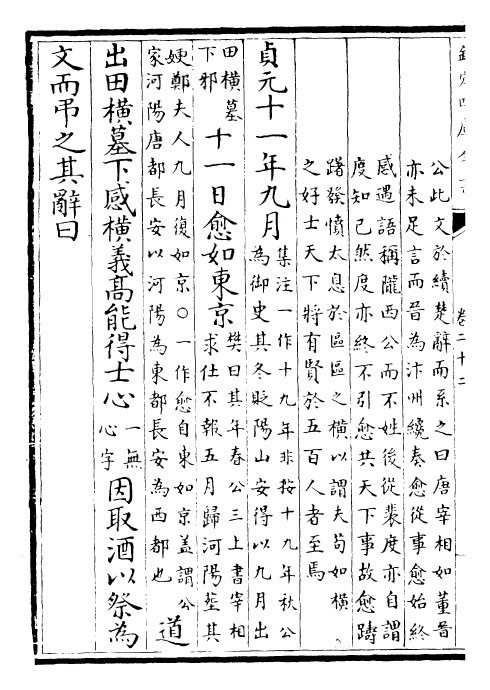 欽定四庫全書
卷二十二
公此文於續楚辭而系之曰唐宰相如董晉
亦未足言而晉為汴州纔奏愈從事愈始終
感遇語稱隴西公而不姓後從裴度亦自謂
度知已然度亦終不引愈共天下事故愈躊
躇發憤太息於區區之橫以謂夫苟如橫
之好士天下將有賢於五百人者至焉
貞元十一年九月
集注一作十九年非按十九年秋公
為御史其冬貶陽山安得以九月出
田橫墓
下邪
十一日愈如東京
樊曰其年春公三上書宰相
求仕不報五月歸河陽塟其
嫂鄭夫人九月復如京○一作愈自東如京葢謂公
家河陽唐都長安以河陽為東都長安為西都也
道
出田橫墓下感橫義髙能得士心
一無
心字
因取酒以祭為
文而弔之其辭曰